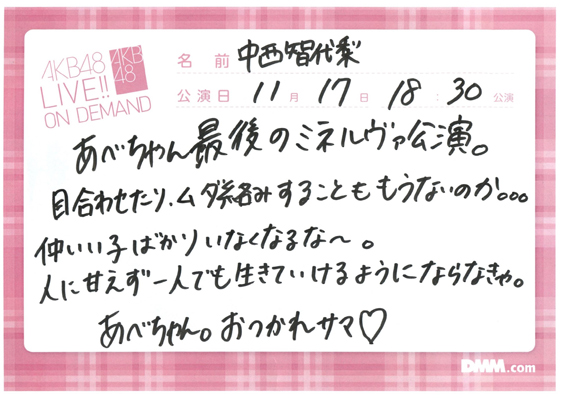 AKB48
LIVE!!
ON DEMAND
AKB
48
名前 中西智代梨
公演日 11月17日 18:30公演
あべちゃん最後のミネルヴァ公演。
目合わせたり、ムダ絡みすることももうないのか。。。
仲いい子ばかりいなくなるな〜。
人に甘えず一人でも生きていけるようにならなきゃ。
あべちゃん。おつかれサマ♡
DMM.com